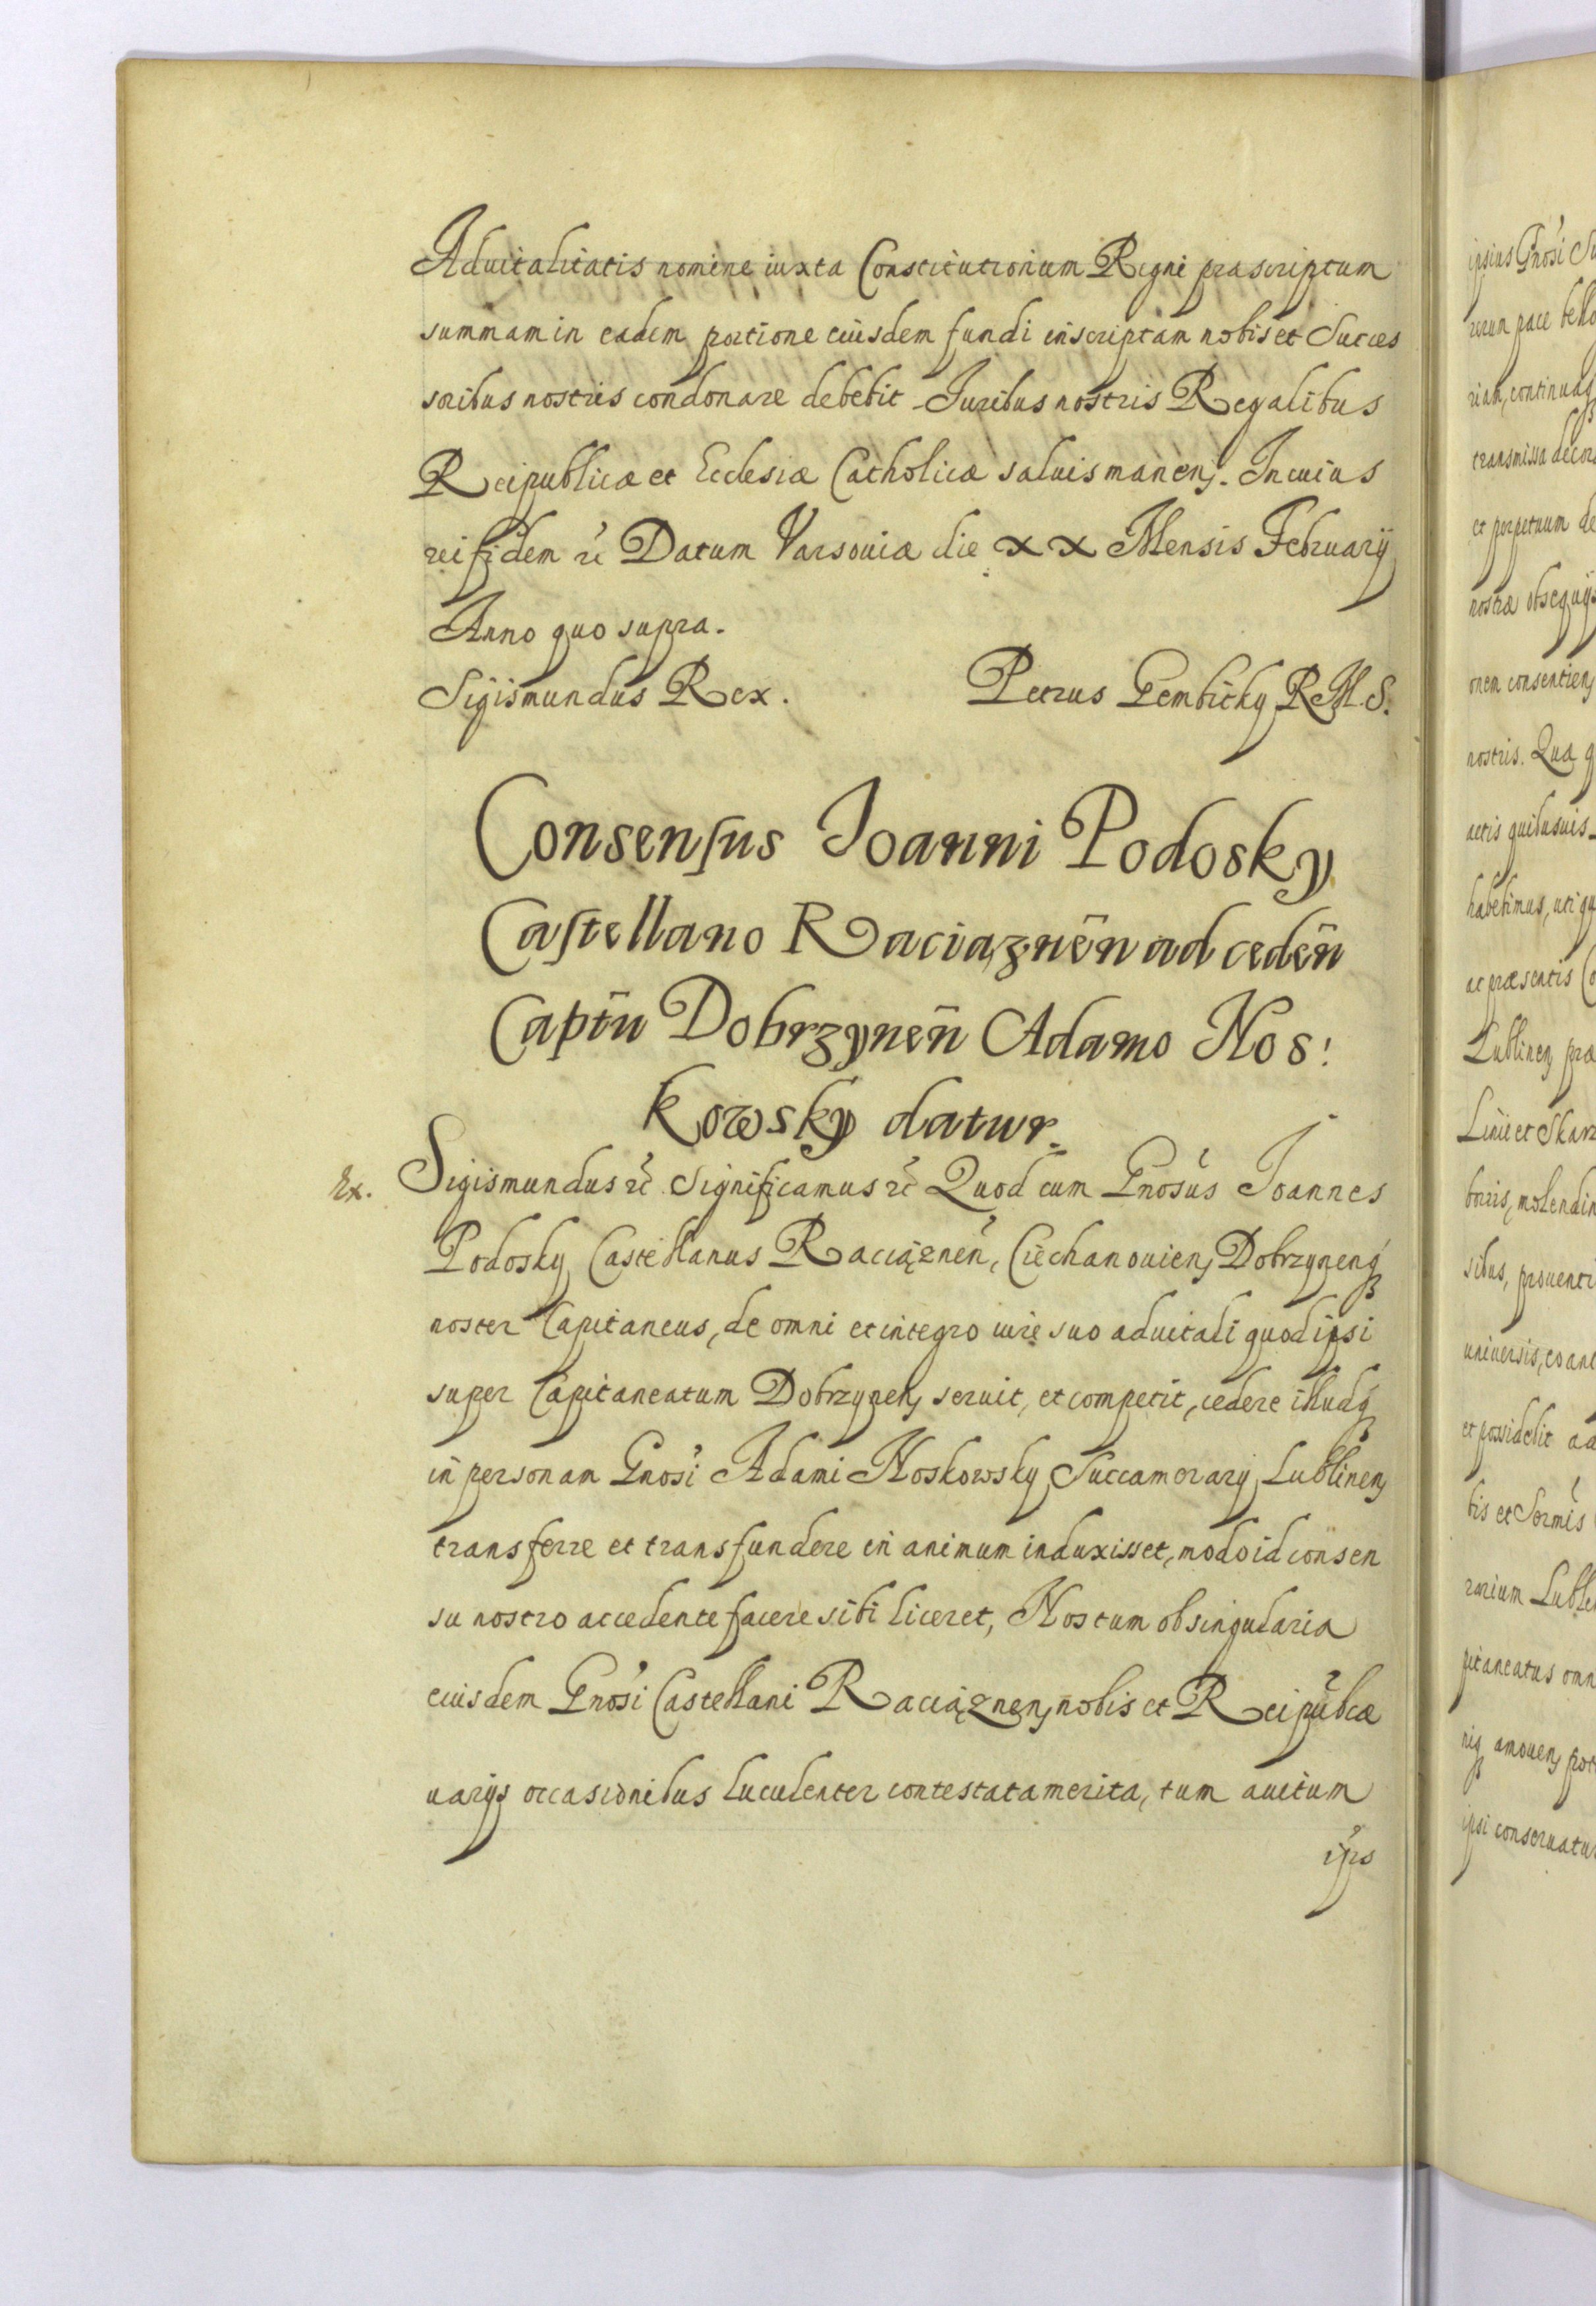 Aduitalitatis nomine iuxta Constitutionum Regni præscriptum
summam in eadem portione eiusdem fundi inscriptam nobis et Succes
soribus nostris condonare debebit. Iuribus nostris Regalibus
Reipublicæ et Ecclesiæ Catholicæ saluis manen. In cuius
rei fidem etc̃ Datum Varsouiæ die XX Mensis February
Anno quo supra.
Sigismundus Rex. Petrus Gembicky R. M. S.
Consensus Joanni Podosky
Castellano Raciąznen̄ ad ceden̄
Captũ Dobrzynen̄ Adamo Nos:
kowsky datur.
Ex. Sigismundus etc̃ Significamus etc̃ Quod cum Gnosus Ioannes
Podosky Castellanus Raciąznen, Ciechanouien, Dobrzynenq
noster Capitaneus, de omni et integro iure suo aduitali quod ipsi
super Capitaneatum Dobrzynen seruit, et competit, cedere illudq
in personam Gnosi Adami Noskowsky Succamerary Lublinen
transferre et transfundere in animum induxisset, modo id consen
su nostro accedente facere sibi liceret, Nos tum ob singularia
eiusdem Gnosi Castellani Raciąznen, nobis et Reipublcæ
uarijs occasionibus luculenter contestata merita, tum auitum
ips
ipsius Gnosi
rerum pace bello
riam, continuaq
transmissa
et perpetuum de
nostræ obsequijs
onem consentien
nostris. Qua
actis quibusuis
habebimus, uti
ac præsentis
Lublinen
et Skarz
molendin
sibus, prouenti
uniuersis, eo
et possidebit
bis et
rarium Lublin
pitaneatus omn
amouen
ipsi conseruatur